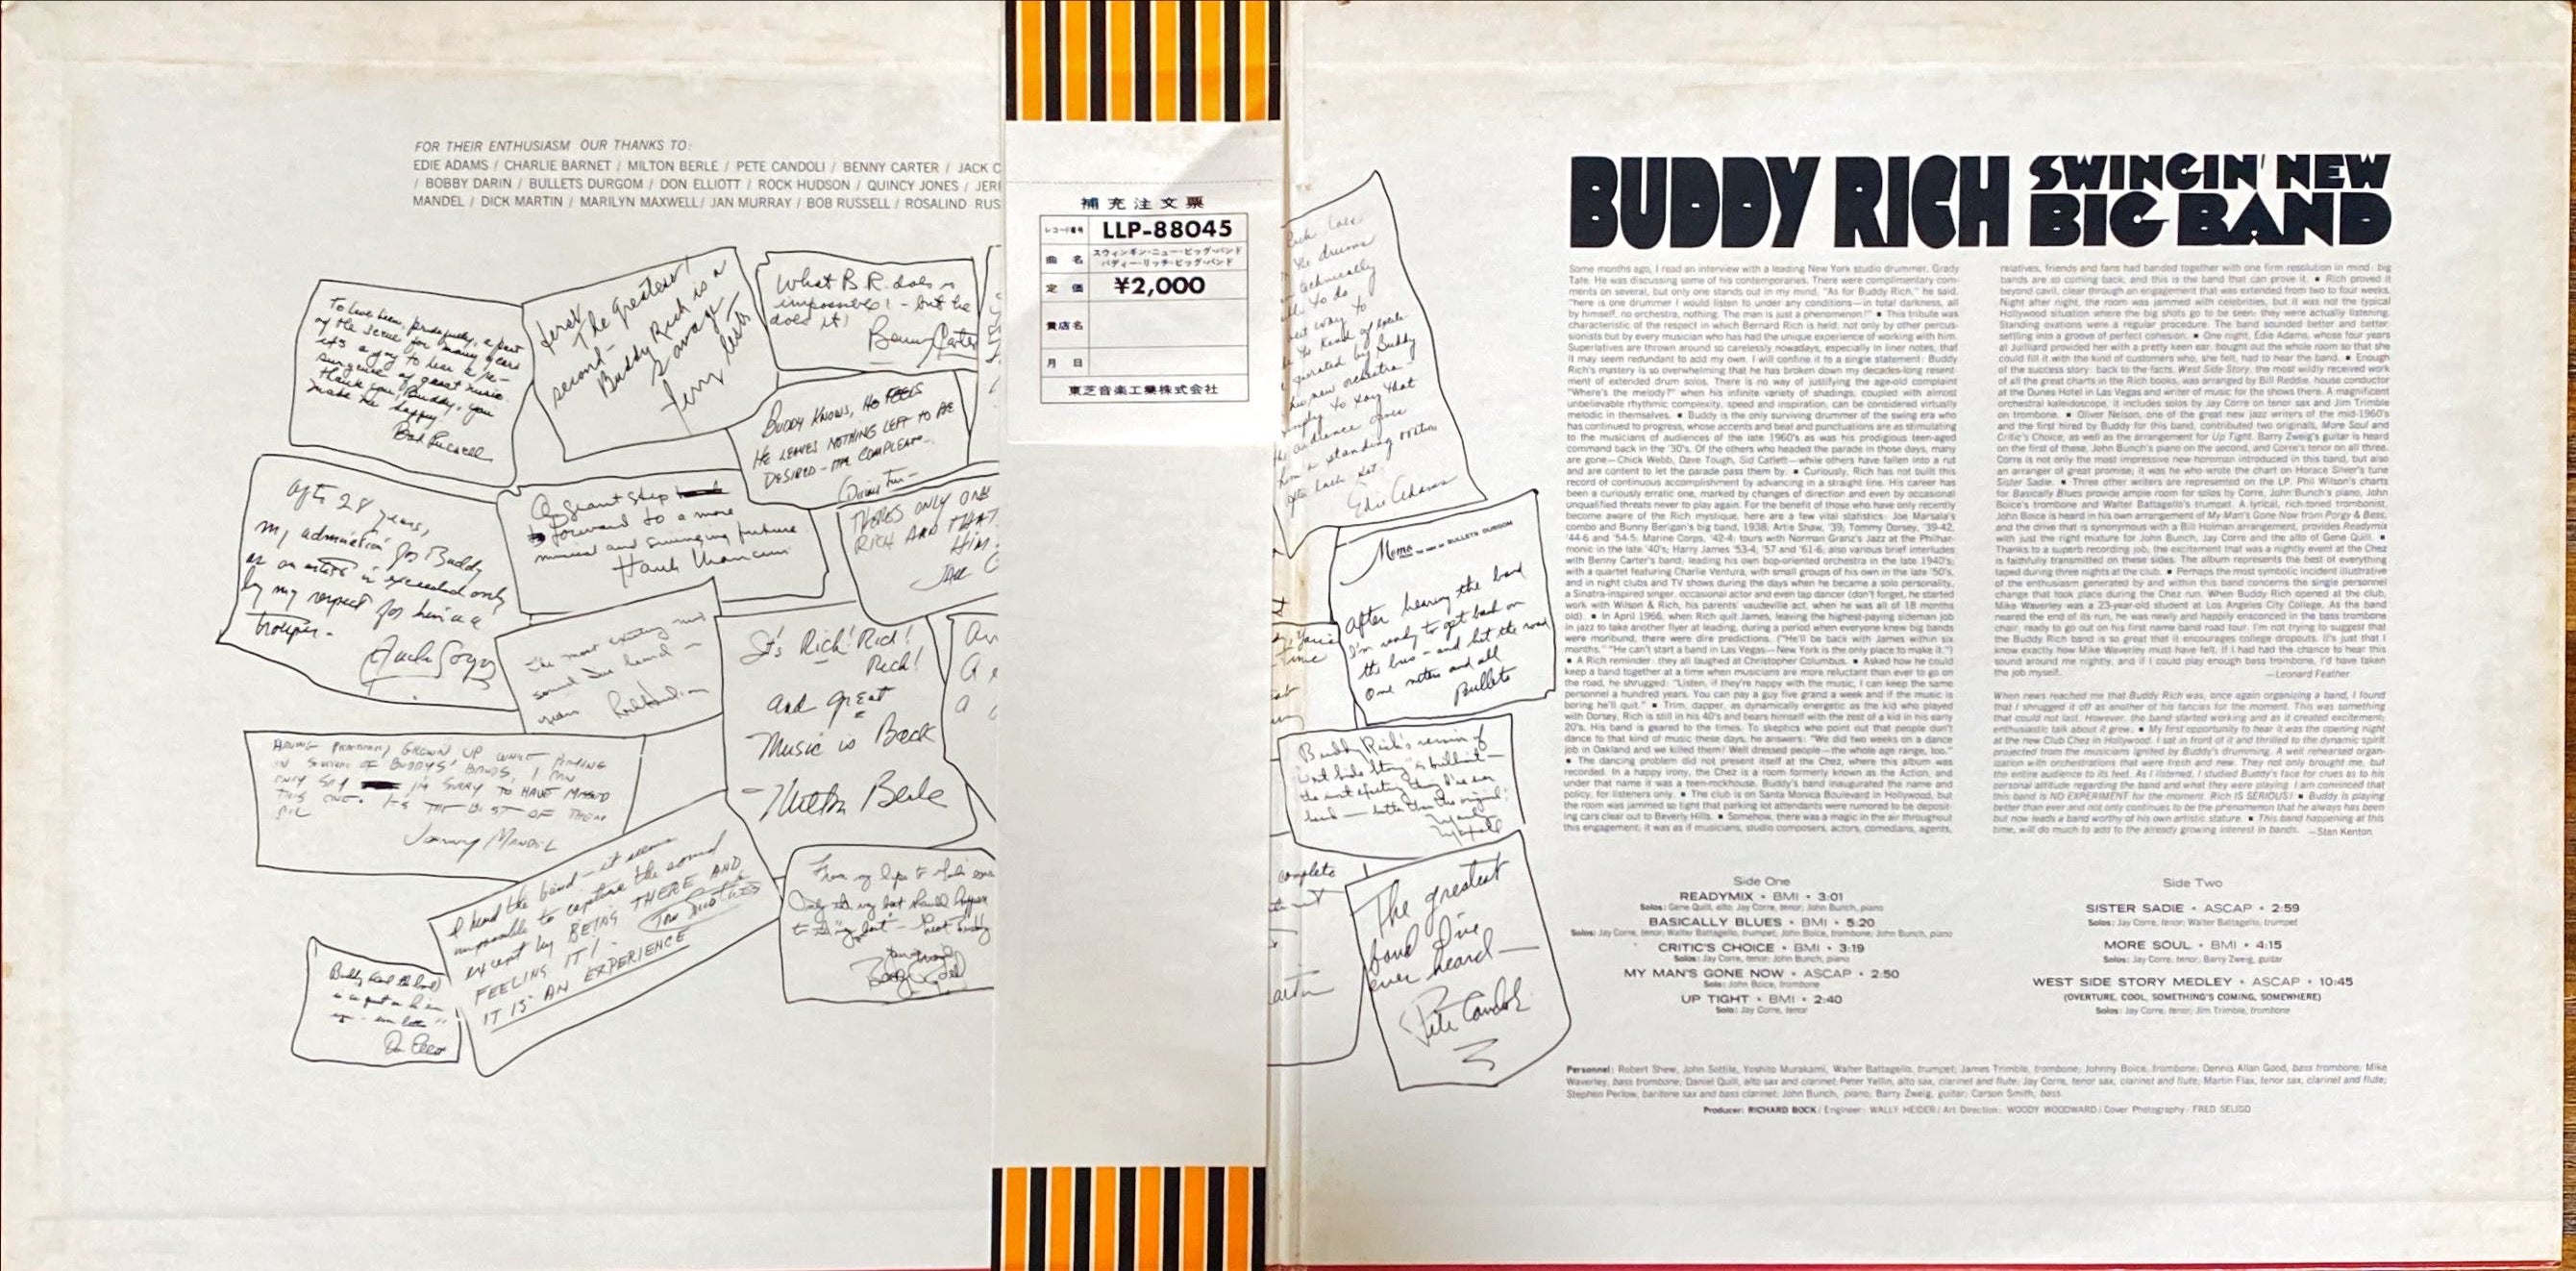 FOR THEIR ENTHUSIASM OUR THANKS TO:
EDIE ADAMS / CHARLIE BARNET / MILTON BERLE / PETE CANDOLI / BENNY CARTER / JACK C
/ BOBBY DARIN / BULLETS DURGOM / DON ELLIOTT / ROCK HUDSON / QUINCY JONES / JER
MANDEL / DICK MARTIN / MARILYN MAXWELL / JAN MURRAY / BOB RUSSELL / ROSALIND RUS
To have been, a part
of the scene for many years
it's a joy to hear a re-
surgence of great music.
thank you, Buddy, you
make me happy
Bob Russell
first
The greatest!
second-
Buddy Rich is a
savage
What B.R. does is
impossible! - but he
does it!
Benny Carter
BUDDY KNOWS, HE FEELS
HE LEAVES NOTHING LEFT TO BE
DESIRED - COMPLEAT.
After 28 years,
my admiration for Buddy
as an artist is exceeded only
by my respect for him as a
trouper.
A giant step
forward to a more
musical and swinging future
Hank Mancini
THERES ONLY ONE
RICH AND THAT
HIM.
The most exciting new
sound I've heard -
years Rock Hudson
It's Rich! Rich!
Rich!
and great
Music is Back
- Milton Berle
HAVING GROWN UP WHILE PLAYING
IN SEVERAL OF BUDDYS' BANDS, I CAN
ONLY SAY I'M SORRY TO HAVE MISSED
THIS ONE. IT'S THE BEST OF THEM
ALL
Johnny MANDEL
I heard the band - it seems
impossible to capture the sound
except by BEING THERE AND
FEELING IT!
IT IS AN EXPERIENCE
From my lips to
補充注文票
レコード番号 LLP-88045
曲名 スウィンギン・ニュー・ビッグ・バンド
バディー・リッチ・ビッグ・バンド
定価 ¥2,000
貴店名
月日
東芝音楽工業株式会社
Rich
the drums
technically
to do
way to
generated by Buddy
his new orchestra -
simply to say that
the audience gives
him a standing ovation
after each set.
Edie Adams
Memo FROM THE DESK OF BULLETS DURGOM
After hearing the band
I'm ready to get back on
the bus - and hit the road
One niters and all
Bullets
Buddy Rich's version of
"West Side Story" is brilliant -
the most exciting thing I've ever
heard - better than the original!
complete
The greatest
band I've
ever heard -
Pete Candoli
BUDDY RICH SWINGIN' NEW
BIG BAND
Some months ago, I read an interview with a leading New York studio drummer, Grady
Tate. He was discussing some of his contemporaries. There were complimentary com-
ments on several, but only one stands out in my mind. "As for Buddy Rich," he said,
"here is one drummer I would listen to under any conditions—in total darkness, all
by himself, no orchestra, nothing. The man is just a phenomenon!" ▪ This tribute was
characteristic of the respect in which Bernard Rich is held, not only by other percus-
sionists but by every musician who has had the unique experience of working with him.
Superlatives are thrown around so carelessly nowadays, especially in liner notes, that
it may seem redundant to add my own. I will confine it to a single statement: Buddy
Rich's mastery is so overwhelming that he has broken down my decades-long resent-
ment of extended drum solos. There is no way of justifying the age-old complaint
"Where's the melody?" when his infinite variety of shadings, coupled with almost
unbelievable rhythmic complexity, speed and inspiration, can be considered virtually
melodic in themselves. ▪ Buddy is the only surviving drummer of the swing era who
has continued to progress, whose accents and beat and punctuations are as stimulating
to the musicians of audiences of the late 1960's as was his prodigious teen-aged
command back in the '30's. Of the others who headed the parade in those days, many
are gone—Chick Webb, Dave Tough, Sid Catlett—while others have fallen into a rut
and are content to let the parade pass them by. ▪ Curiously, Rich has not built this
record of continuous accomplishment by advancing in a straight line. His career has
been a curiously erratic one, marked by changes of direction and even by occasional
unqualified threats never to play again. For the benefit of those who have only recently
become aware of the Rich mystique, here are a few vital statistics: Joe Marsala's
combo and Bunny Berigan's big band, 1938, Artie Shaw, '39, Tommy Dorsey, '39-42,
'44-6 and '54-5, Marine Corps, '42-4; tours with Norman Granz's Jazz at the Philhar-
monic in the late '40's; Harry James '53-4, '57 and '61-6; also various brief interludes
with Benny Carter's band; leading his own bop-oriented orchestra in the late 1940's;
with a quartet featuring Charlie Ventura, with small groups of his own in the late '50's,
and in night clubs and TV shows during the days when he became a solo personality,
a Sinatra-inspired singer, occasional actor and even tap dancer (don't forget, he started
work with Wilson & Rich, his parents' vaudeville act, when he was all of 18 months
old). ▪ In April 1966, when Rich quit James, leaving the highest-paying sideman job
in jazz to take another flyer at leading, during a period when everyone knew big bands
were moribund, there were dire predictions. ("He'll be back with James within six
months." "He can't start a band in Las Vegas—New York is the only place to make it.")
▪ A Rich reminder: they all laughed at Christopher Columbus. ▪ Asked how he could
keep a band together at a time when musicians are more reluctant than ever to go on
the road, he shrugged: "Listen, if they're happy with the music, I can keep the same
personnel a hundred years. You can pay a guy five grand a week and if the music is
boring he'll quit." ▪ Trim, dapper, as dynamically energetic as the kid who played
with Dorsey, Rich is still in his 40's and bears himself with the zest of a kid in his early
20's. His band is geared to the times. To skeptics who point out that people don't
dance to that kind of music these days, he answers: "We did two weeks on a dance
job in Oakland and we killed them! Well dressed people—the whole age range, too."
▪ The dancing problem did not present itself at the Chez, where this album was
recorded. In a happy irony, the Chez is a room formerly known as the Action, and
under that name it was a teen-rockhouse. Buddy's band inaugurated the name and
policy, for listeners only. ▪ The club is on Santa Monica Boulevard in Hollywood, but
the room was jammed so tight that parking lot attendants were rumored to be deposit-
ing cars clear out to Beverly Hills. ▪ Somehow, there was a magic in the air throughout
this engagement; it was as if musicians, studio composers, actors, comedians, agents,
relatives, friends and fans had banded together with one firm resolution in mind: big
bands are so coming back, and this is the band that can prove it. ▪ Rich proved it
beyond cavil, clear through an engagement that was extended from two to four weeks.
Night after night, the room was jammed with celebrities, but it was not the typical
Hollywood situation where the big shots go to be seen; they were actually listening.
Standing ovations were a regular procedure. The band sounded better and better,
settling into a groove of perfect cohesion. ▪ One night, Edie Adams, whose four years
at Juilliard provided her with a pretty keen ear, bought out the whole room so that she
could fill it with the kind of customers who, she felt, had to hear the band. ▪ Enough
of the success story: back to the facts. West Side Story, the most wildly received work
of all the great charts in the Rich books, was arranged by Bill Reddie, house conductor
at the Dunes Hotel in Las Vegas and writer of music for the shows there. A magnificent
orchestral kaleidoscope, it includes solos by Jay Corre on tenor sax and Jim Trimble
on trombone. ▪ Oliver Nelson, one of the great new jazz writers of the mid-1960's
and the first hired by Buddy for this band, contributed two originals, More Soul and
Critic's Choice, as well as the arrangement for Up Tight. Barry Zweig's guitar is heard
on the first of these, John Bunch's piano on the second, and Corre's tenor on all three.
Corre is not only the most impressive new hornman introduced in this band, but also
an arranger of great promise; it was he who wrote the chart on Horace Silver's tune
Sister Sadie. ▪ Three other writers are represented on the LP. Phil Wilson's charts
for Basically Blues provide ample room for solos by Corre, John Bunch's piano, John
Boice's trombone and Walter Battagello's trumpet. A lyrical, rich-toned trombonist,
John Boice is heard in his own arrangement of My Man's Gone Now from Porgy & Bess,
and the drive that is synonymous with a Bill Holman arrangement, provides Readymix
with just the right mixture for John Bunch, Jay Corre and the alto of Gene Quill. ▪
Thanks to a superb recording job, the excitement that was a nightly event at the Chez
is faithfully transmitted on these sides. The album represents the best of everything
taped during three nights at the club. ▪ Perhaps the most symbolic incident illustrative
of the enthusiasm generated by and within this band concerns the single personnel
change that took place during the Chez run. When Buddy Rich opened at the club,
Mike Waverley was a 23-year-old student at Los Angeles City College. As the band
neared the end of its run, he was newly and happily ensconced in the bass trombone
chair, ready to go out on his first name band road tour. I'm not trying to suggest that
the Buddy Rich band is so great that it encourages college dropouts. It's just that I
know exactly how Mike Waverley must have felt. If I had had the chance to hear this
sound around me nightly, and if I could play enough bass trombone, I'd have taken
the job myself.
—Leonard Feather
When news reached me that Buddy Rich was, once again organizing a band, I found
that I shrugged it off as another of his fancies for the moment. This was something
that could not last. However, the band started working and as it created excitement,
enthusiastic talk about it grew. ▪ My first opportunity to hear it was the opening night
at the new Club Chez in Hollywood. I sat in front of it and thrilled to the dynamic spirit
projected from the musicians ignited by Buddy's drumming. A well rehearsed organ-
ization with orchestrations that were fresh and new. They not only brought me, but
the entire audience to its feet. As I listened, I studied Buddy's face for clues as to his
personal attitude regarding the band and what they were playing. I am convinced that
this band is NO EXPERIMENT for the moment. Rich IS SERIOUS! ▪ Buddy is playing
better than ever and not only continues to be the phenomenon that he always has been
but now leads a band worthy of his own artistic stature. ▪ This band happening at this
time, will do much to add to the already growing interest in bands. —Stan Kenton
Side One
READYMIX • BMI • 3:01
Solos: Gene Quill, alto; Jay Corre, tenor; John Bunch, piano
BASICALLY BLUES • BMI • 5:20
Solos: Jay Corre, tenor; Walter Battagello, trumpet; John Boice, trombone; John Bunch, piano
CRITIC'S CHOICE • BMI • 3:19
Solos: Jay Corre, tenor; John Bunch, piano
MY MAN'S GONE NOW • ASCAP • 2:50
Solo: John Boice, trombone
UP TIGHT • BMI • 2:40
Solo: Jay Corre, tenor
Side Two
SISTER SADIE • ASCAP • 2:59
Solos: Jay Corre, tenor; Walter Battagello, trumpet
MORE SOUL • BMI • 4:15
Solos: Jay Corre, tenor; Barry Zweig, guitar
WEST SIDE STORY MEDLEY • ASCAP • 10:45
(OVERTURE, COOL, SOMETHING'S COMING, SOMEWHERE)
Solos: Jay Corre, tenor; Jim Trimble, trombone
Personnel: Robert Shew, John Sottile, Yoshito Murakami, Walter Battagello, trumpet; James Trimble, trombone; Johnny Boice, trombone; Dennis Allan Good, bass trombone; Mike
Waverley, bass trombone; Daniel Quill, alto sax and clarinet; Peter Yellin, alto sax, clarinet and flute; Jay Corre, tenor sax, clarinet and flute; Martin Flax, tenor sax, clarinet and flute;
Stephen Perlow, baritone sax and bass clarinet; John Bunch, piano; Barry Zweig, guitar; Carson Smith, bass
Producer: RICHARD BOCK / Engineer: WALLY HEIDER / Art Direction: WOODY WOODWARD / Cover Photography: FRED SELIGO